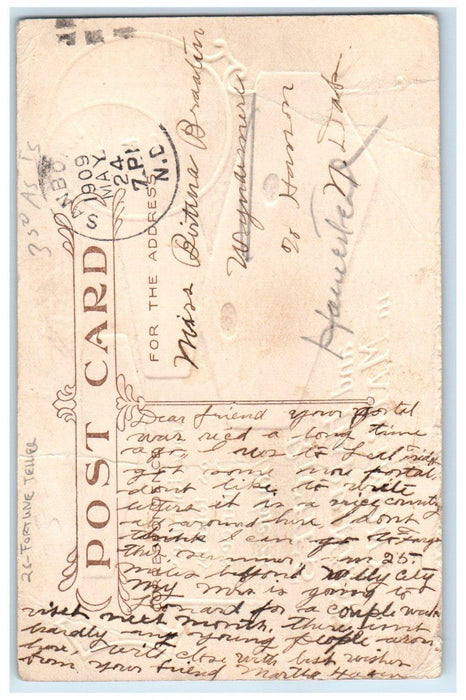 POST CARD
FOR THE ADDRESS
SANBO
1909
MAY
24
7 PM
N.D.
Miss
Wyndmere
c/o Hanson
N Dak
26-FORTUNE TELLER
Dear friend your postal
was recd a long time
ago, I was to
got some new postal
dont like to write
letters it is a nice country
all around here I dont
think I can go to
this summer am 25.
miles
My Mrs is going to
for a couple weeks
visit next month. there isnt
hardly any young people around
here will close with best wishes
from your friend Martha